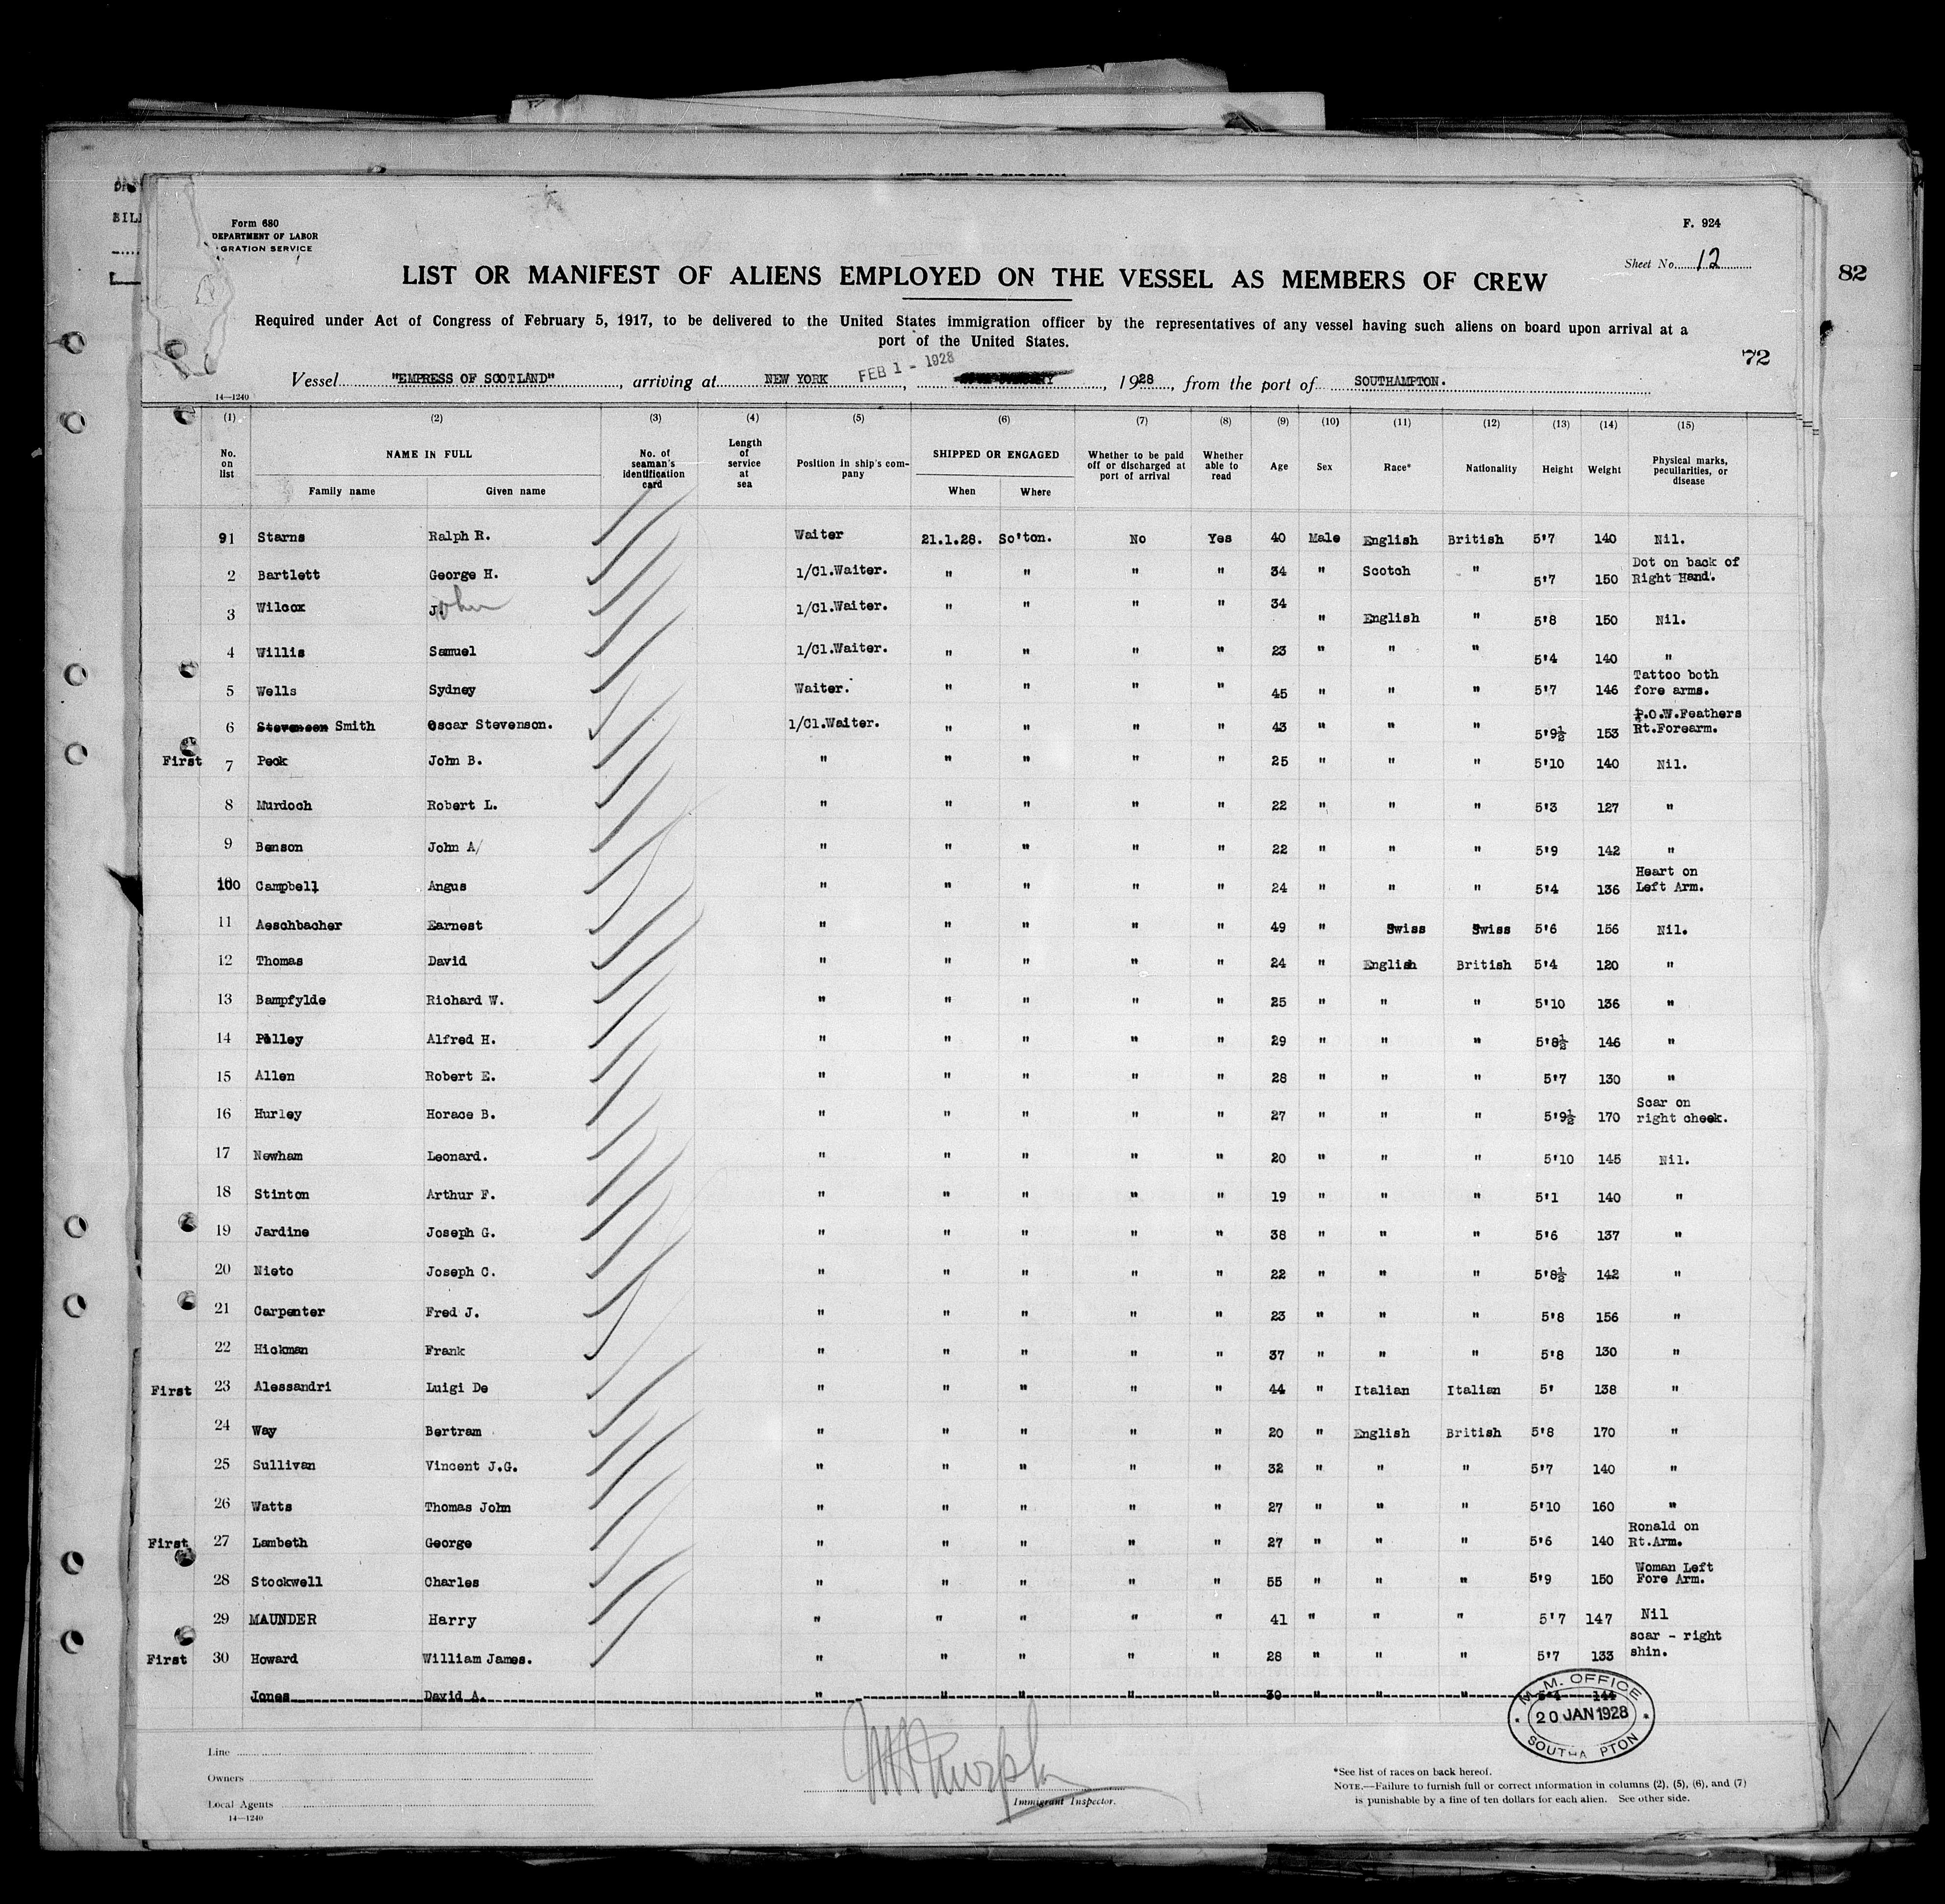 Form 680
DEPARTMENT OF LABOR
GRATION SERVICE
F. 924
Sheet No. 12
82
LIST OR MANIFEST OF ALIENS EMPLOYED ON THE VESSEL AS MEMBERS OF CREW
Required under Act of Congress of February 5, 1917, to be delivered to the United States immigration officer by the representatives of any vessel having such aliens on board upon arrival at a
port of the United States.
72
Vessel "EMPRESS OF SCOTLAND", arriving at NEW YORK FEB 1 - 1928, 1928, from the port of SOUTHAMPTON.
14—1240
(1) (2) (3) (4) (5) (6) (7) (8) (9) (10) (11) (12) (13) (14) (15)
No. on list NAME IN FULL Family name Given name No. of seaman's identification card Length of service at sea Position in ship's company SHIPPED OR ENGAGED When Where Whether to be paid off or discharged at port of arrival Whether able to read Age Sex Race* Nationality Height Weight Physical marks, peculiarities, or disease
91 Starns Ralph R. Waiter 21.1.28. So'ton. No Yes 40 Male English British 5'7 140 Nil.
2 Bartlett George H. 1/Cl.Waiter. " " " " 34 " Scotch " 5'7 150 Dot on back of Right Hand.
3 Wilcox John 1/Cl.Waiter. " " " " 34 " English " 5'8 150 Nil.
4 Willis Samuel 1/Cl.Waiter. " " " " 23 " " " 5'4 140 "
5 Wells Sydney Waiter. " " " " 45 " " " 5'7 146 Tattoo both fore arms.
6 Stevenson Smith Oscar Stevenson. 1/Cl.Waiter. " " " " 43 " " " 5'9½ 153 P.O.W.Feathers Rt.Forearm.
First 7 Peck John B. " " " " " 25 " " " 5'10 140 Nil.
8 Murdoch Robert L. " " " " " 22 " " " 5'3 127 "
9 Benson John A/ " " " " " 22 " " " 5'9 142 "
100 Campbell Angus " " " " " 24 " " " 5'4 136 Heart on Left Arm.
11 Aeschbacher Earnest " " " " " 49 " Swiss Swiss 5'6 156 Nil.
12 Thomas David " " " " " 24 " English British 5'4 120 "
13 Bampfylde Richard W. " " " " " 25 " " " 5'10 136 "
14 Polley Alfred H. " " " " " 29 " " " 5'8½ 146 "
15 Allen Robert E. " " " " " 28 " " " 5'7 130 "
16 Hurley Horace B. " " " " " 27 " " " 5'9½ 170 Scar on right cheek.
17 Newham Leonard. " " " " " 20 " " " 5'10 145 Nil.
18 Stinton Arthur F. " " " " " 19 " " " 5'1 140 "
19 Jardine Joseph G. " " " " " 38 " " " 5'6 137 "
20 Nieto Joseph C. " " " " " 22 " " " 5'8½ 142 "
21 Carpenter Fred J. " " " " " 23 " " " 5'8 156 "
22 Hickman Frank " " " " " 37 " " " 5'8 130 "
First 23 Alessandri Luigi De " " " " " 44 " Italian Italian 5' 138 "
24 Way Bertram " " " " " 20 " English British 5'8 170 "
25 Sullivan Vincent J.G. " " " " " 32 " " " 5'7 140 "
26 Watts Thomas John " " " " " 27 " " " 5'10 160 "
First 27 Lambeth George " " " " " 27 " " " 5'6 140 Ronald on Rt.Arm.
28 Stockwell Charles " " " " " 55 " " " 5'9 150 Woman Left Fore Arm.
29 MAUNDER Harry " " " " " 41 " " " 5'7 147 Nil
First 30 Howard William James. " " " " " 28 " " " 5'7 133 scar - right shin.
Jones David A. " " " " " 30 " " " 5'4 144
M.M. OFFICE
20 JAN 1928
SOUTHA PTON
Line
Owners
Local Agents
14—1240
Immigrant Inspector.
*See list of races on back hereof.
NOTE.—Failure to furnish full or correct information in columns (2), (5), (6), and (7)
is punishable by a fine of ten dollars for each alien. See other side.